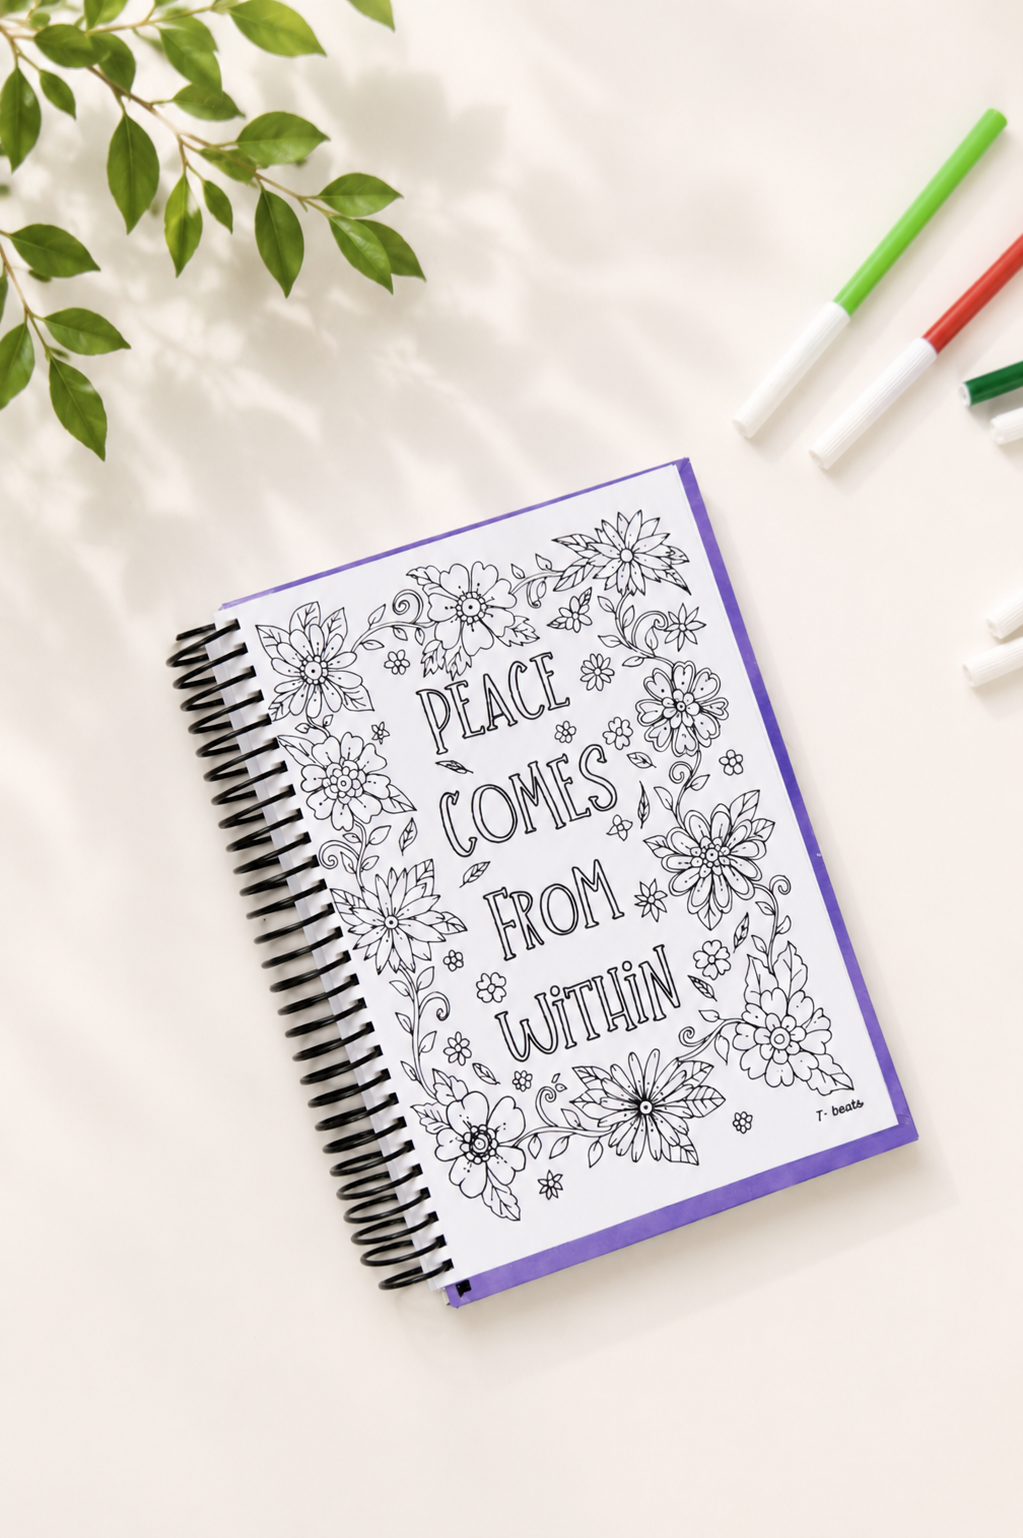 PEACE
COMES
FROM
WiTHiN
T. beats